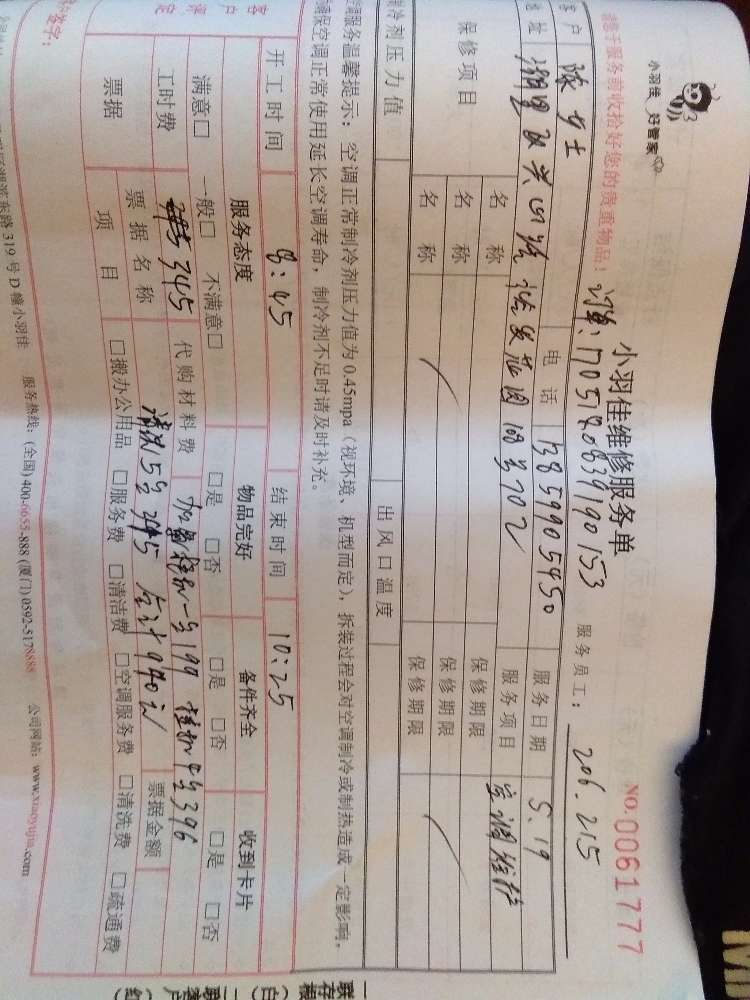 小羽佳 好管家
小羽佳维修服务单
NO. 0061777
请于服务前收拾好您的贵重物品!
订单: 1705180839190153
服务员工: 206. 215
客户 陈女士 电话 13859905450 服务日期 5.19
地址 108号702 服务项目 空调维护
保修项目 名称 保修期限
名称 保修期限
名称 保修期限
制冷剂压力值 出风口温度
空调服务温馨提示: 空调正常制冷剂压力值为0.45mpa (视环境、机型而定), 拆装过程会对空调制冷或制热造成一定影响,
确保空调正常使用延长空调寿命, 制冷剂不足时请及时补充。
开工时间 8:45 结束时间 10:25
客户 服务态度 物品完好 备件齐全 收到卡片
满意□ 一般□ 不满意□ □是 □否 □是 □否 □是 □否
工时费 345 代购材料费 一台199 挂机4台396
清洗5台 合计940元
票据 票据名称 票据金额
项目 □搬办公用品 □服务费 □清洁费 □空调服务费 □清洗费 □疏通费
签字:
路319号D幢小羽佳 服务热线: (全国) 400-6655-888 (厦门) 0592-5178888 公司网站: www.xiaoyujia.com